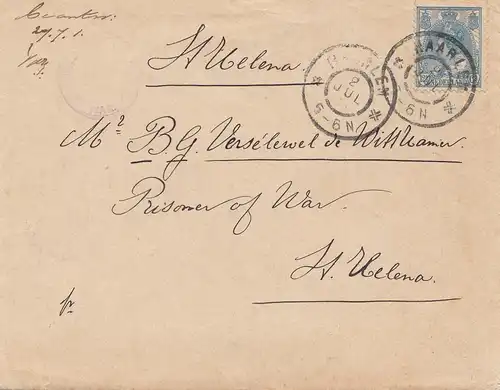 Beantw:
29.7.1.
St Helena
HAARLEM
2
JUL
5-6N
HAARLEM
5-6N
Mr B.G. Versélewel de Witt Hamer
Prisoner of War
St. Helena.